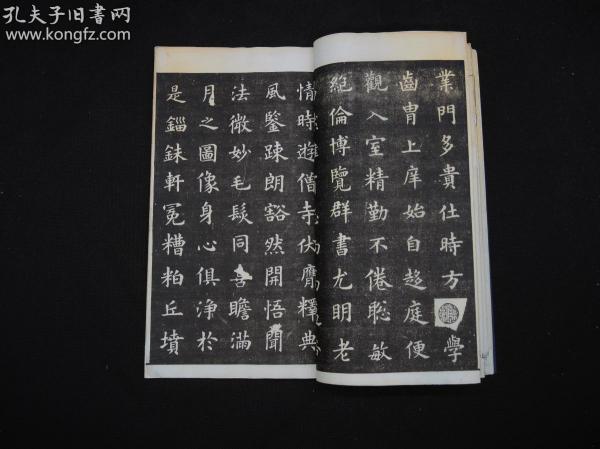 孔夫子旧书网
www.kongfz.com
業門多貴仕時方學
齒胄上庠始自趍庭便
觀入室精勤不倦聡敏
絶倫博覽群書尤明老
情時遊僧寺伏膺釋典
風鑒疎朗豁然開悟聞
法微妙毛髮同喜瞻滿
月之圖像身心俱浄於
是錙銖軒冕糟粕丘墳